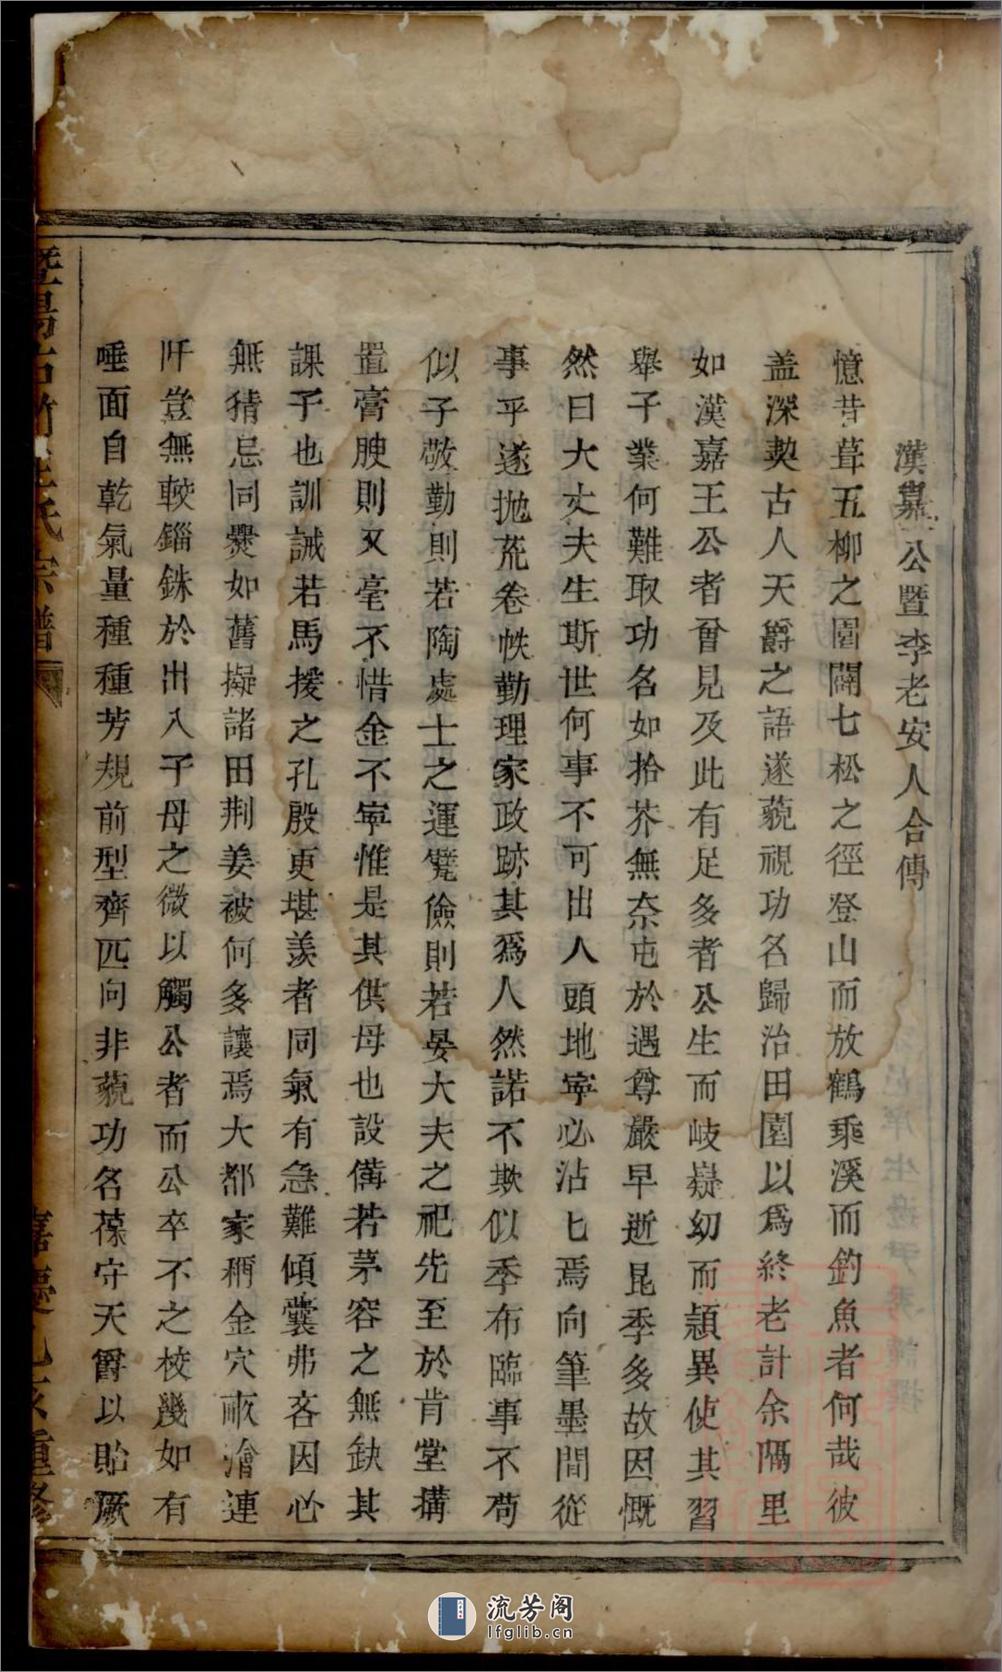 漢嘉公暨李老安人合傳
憶昔葺五柳之園闢七松之徑登山而放鶴乘溪而釣魚者何哉彼
盖深契古人天爵之語遂藐視功名歸治田園以爲終老計余隔里
如漢嘉王公者曾見及此有足多者公生而岐嶷幼而頴異使其習
舉子業何難取功名如拾芥無奈屯於遇尊嚴早逝昆季多故因慨
然曰大丈夫生斯世何事不可出人頭地寧必沾匕焉向筆墨間從
事乎遂抛荒卷帙勤理家政跡其爲人然諾不欺似季布臨事不苟
似子敬勤則若陶處士之運甓儉則若晏大夫之祀先至於肯堂搆
置膏腴則又毫不惜金不寜惟是其供母也設備若茅容之無缺其
課子也訓誡若馬援之孔殷更堪羡者同氣有急難傾囊弗吝因心
無猜忌同爨如舊擬諸田荆姜被何多讓焉大都家稱金穴畞濬連
阡豈無較錙銖於出入子母之微以觸公者而公卒不之校幾如有
唾面自乾氣量種種芳規前型齊匹向非藐功名葆守天爵以貽厥
暨陽古竹王氏宗譜
嘉慶乙亥重修
流芳阁
lfglib.cn